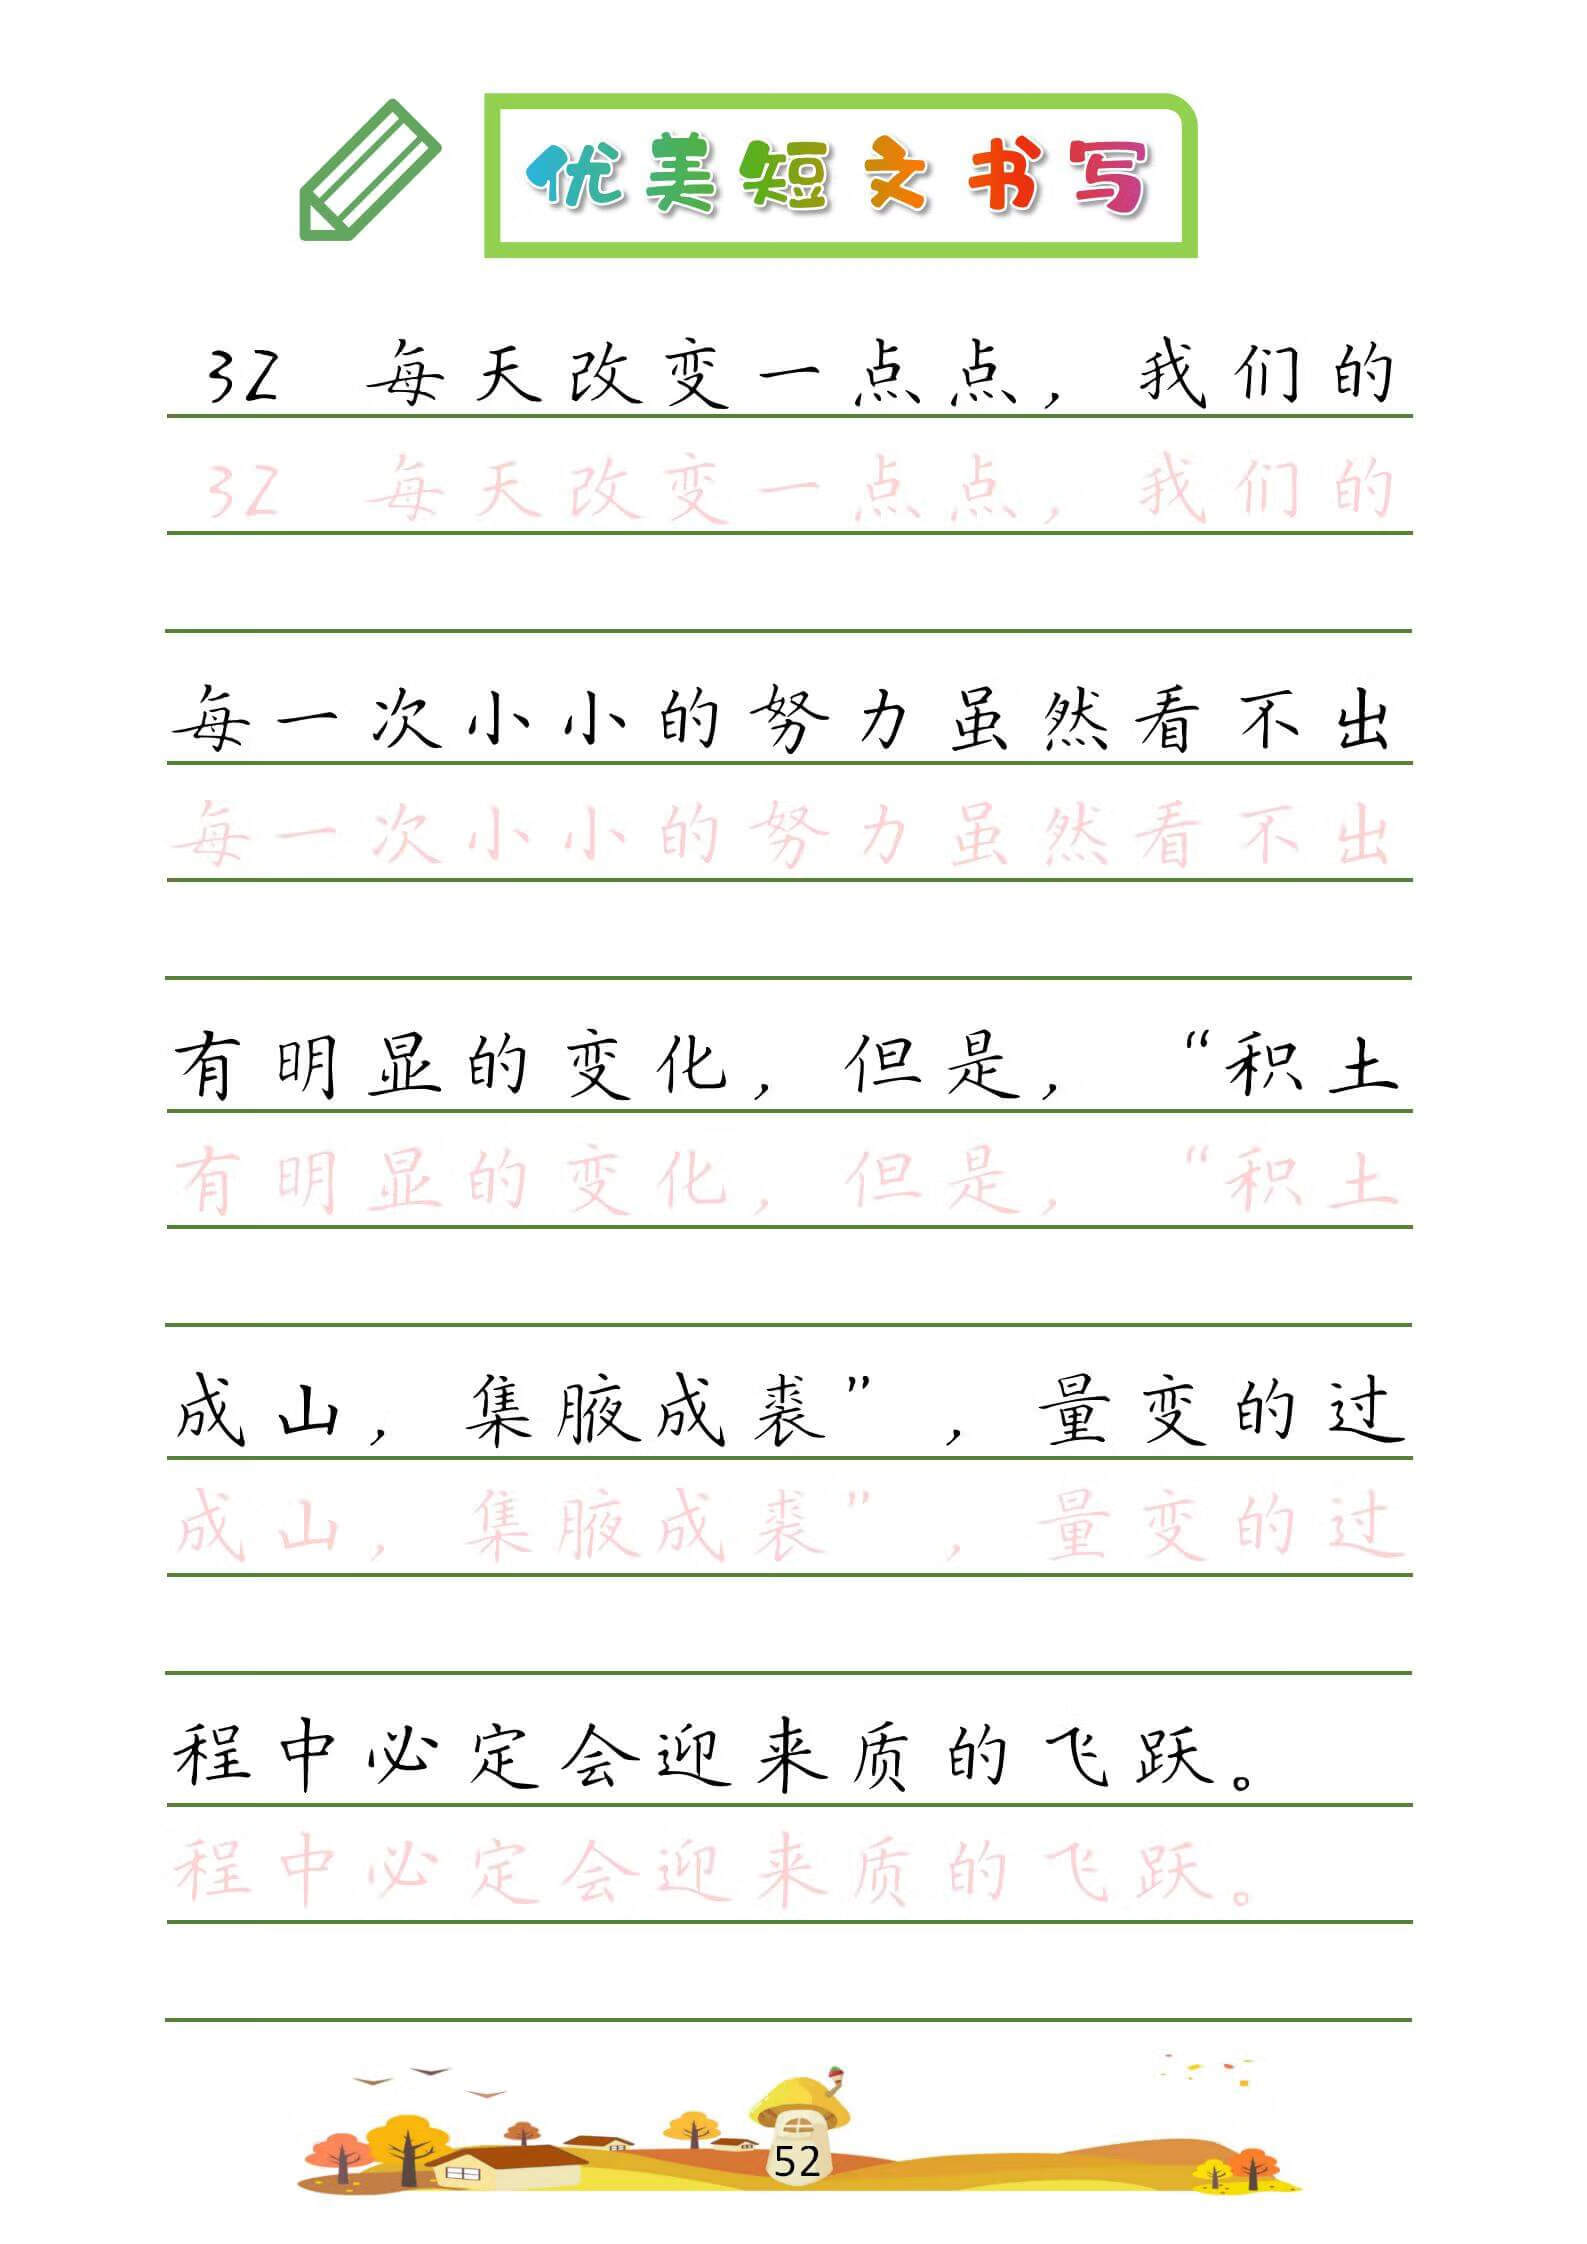 优美短文书写
32 每天改变一点点，我们的
32 每天改变一点点，我们的
每一次小小的努力虽然看不出
每一次小小的努力虽然看不出
有明显的变化，但是，“积土
有明显的变化，但是，“积土
成山，集腋成裘”，量变的过
成山，集腋成裘”，量变的过
程中必定会迎来质的飞跃。
程中必定会迎来质的飞跃。
52